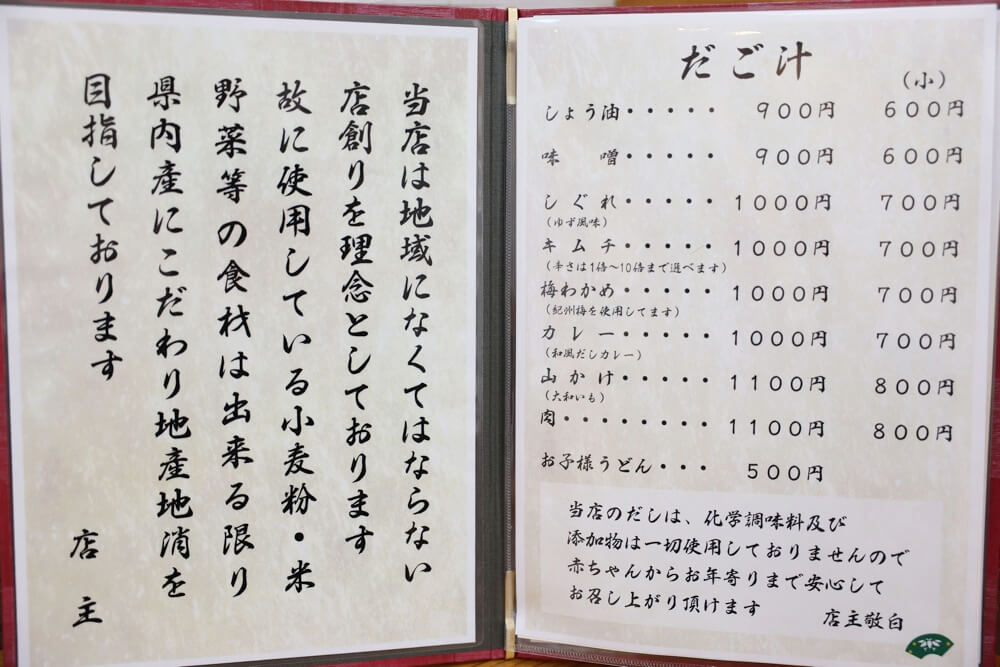 当店は地域になくてはならない
店創りを理念としております
故に使用している小麦粉・米
野菜等の食材は出来る限り
県内産にこだわり地産地消を
目指しております
店主
だご汁
(小)
しょう油・・・・・ 900円 600円
味噌・・・・・ 900円 600円
しぐれ・・・・・ 1000円 700円
(ゆず風味)
キムチ・・・・・ 1000円 700円
(辛さは1倍〜10倍まで選べます)
梅わかめ・・・・・ 1000円 700円
(紀州梅を使用してます)
カレー・・・・・ 1000円 700円
(和風だしカレー)
山かけ・・・・・ 1100円 800円
(大和いも)
肉・・・・・・・・ 1100円 800円
お子様うどん・・・ 500円
当店のだしは、化学調味料及び
添加物は一切使用しておりませんので
赤ちゃんからお年寄りまで安心して
お召し上がり頂けます
店主敬白